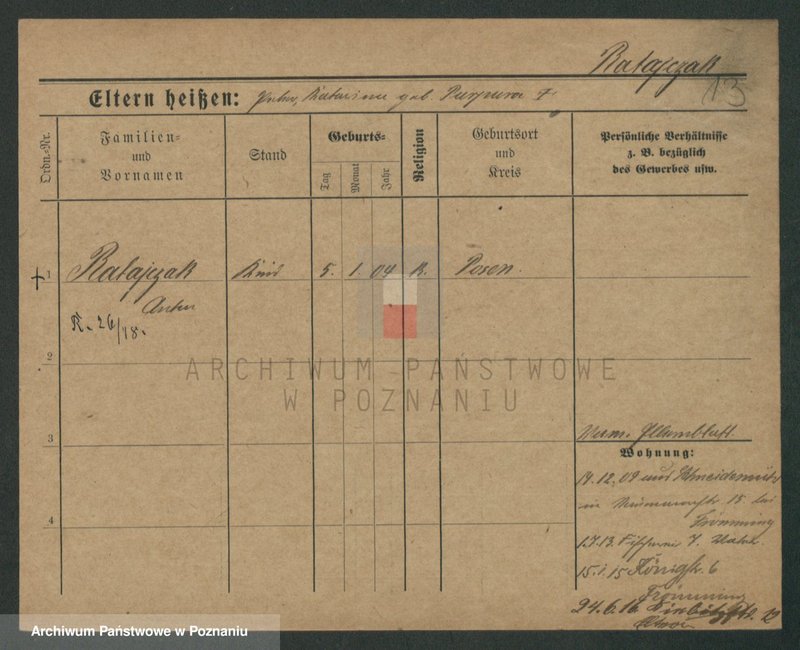 Ratajczak
13
Eltern heißen: Peter, Katarina geb. Purpura †
Ordn.-Nr.
Familien- und Vornamen
Stand
Geburts-
Tag
Monat
Jahr
Religion
Geburtsort und Kreis
Persönliche Verhältnisse z. B. bezüglich des Gewerbes usw.
†1 Ratajczak Kind 5. 1. 04 K. Posen.
Anton
K. 26/18.
2
3
Verm.
Wohnung:
19.12.09 aus Schneidemühl
in 15 bei
Frömming
1.7.13. Fischerei 7.
15.1.15 Königstr. 6
Frömming
4
24.6.16.
ARCHIWUM PAŃSTWOWE
W POZNANIU
Archiwum Państwowe w Poznaniu